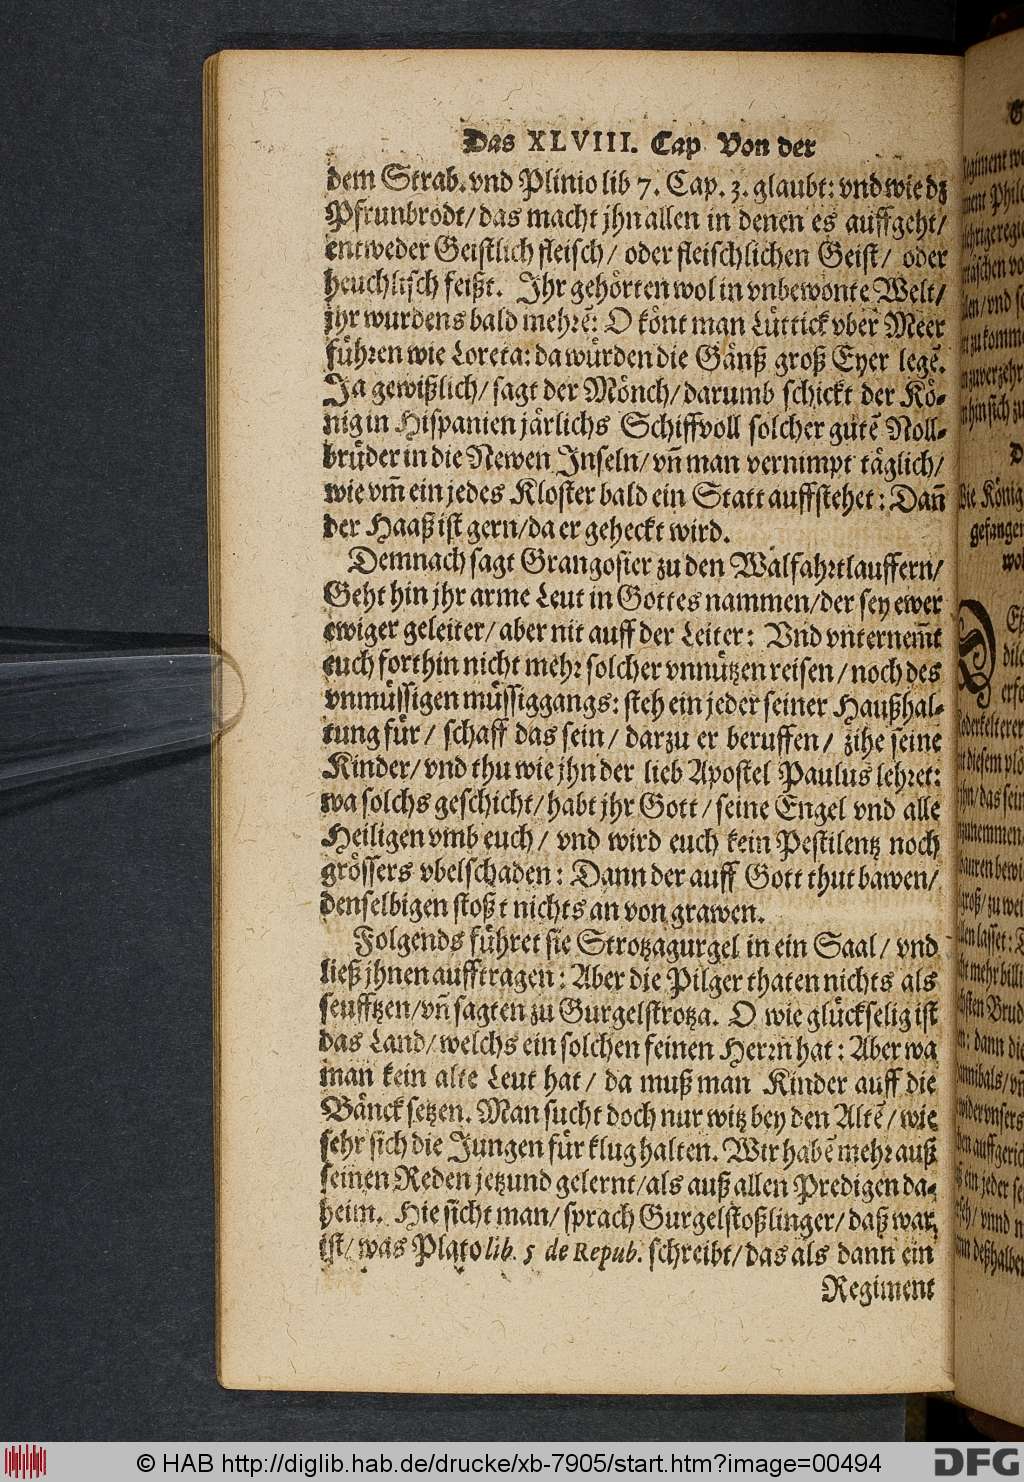 Das XLVIII. Cap Von der
dem Strab. vnd Plinio lib 7. Cap. 3. glaubt: vnd wie dz
Pfrunbrodt/ das macht jhn allen in denen es auffgeht/
entweder Geistlich fleisch/ oder fleischlichen Geist/ oder
heuchlisch feißt. Ihr gehörten wol in vnbewonte Welt/
jhr wurdens bald mehrē: O könt man Lüttick vber Meer
führen wie Loreta: da würden die Gänß groß Eyer legē.
Ja gewißlich/ sagt der Mönch/ darumb schickt der Kö-
nig in Hispanien järlichs Schiffvoll solcher gutē Noll-
brüder in die Newen Inseln/ vñ man vernimpt täglich/
wie vm̄ ein jedes Kloster bald ein Statt auffstehet: Dañ
der Haaß ist gern/ da er geheckt wird.
Demnach sagt Grangosier zu den Walfahrtlauffern/
Geht hin jhr arme Leut in Gottes nammen/ der sey ewer
ewiger geleiter/ aber nit auff der Leiter: Vnd vnternem̄t
euch forthin nicht mehr solcher vnnützen reisen/ noch des
vnmüssigen müssiggangs: steh ein jeder seiner Haußhal-
tung für/ schaff das sein/ darzu er beruffen/ zihe seine
Kinder/ vnd thu wie jhn der lieb Apostel Paulus lehret:
wa solchs geschicht/ habt jhr Gott/ seine Engel vnd alle
Heiligen vmb euch/ vnd wird euch kein Pestilentz noch
grössers vbel schaden: Dann der auff Gott thut bawen/
denselbigen stoßt nichts an von grawen.
Folgends führet sie Strotzagurgel in ein Saal/ vnd
ließ jhnen aufftragen: Aber die Pilger thaten nichts als
seufftzen/ vñ sagten zu Gurgelstrotza. O wie glückselig ist
das Land/ welchs ein solchen feinen Herrn hat: Aber wa
man kein alte Leut hat/ da muß man Kinder auff die
Bänck setzen. Man sucht doch nur witz bey den Altē/ wie
sehr sich die Jungen für klug halten. Wir habē mehr auß
seinen Reden jetzund gelernt/ als auß allen Predigen da-
heim. Hie sicht man/ sprach Gurgelstoßlinger/ daß war
ist/ was Plato lib. 5 de Repub. schreibt/ das als dann ein
Regiment
© HAB http://diglib.hab.de/drucke/xb-7905/start.htm?image=00494
DFG